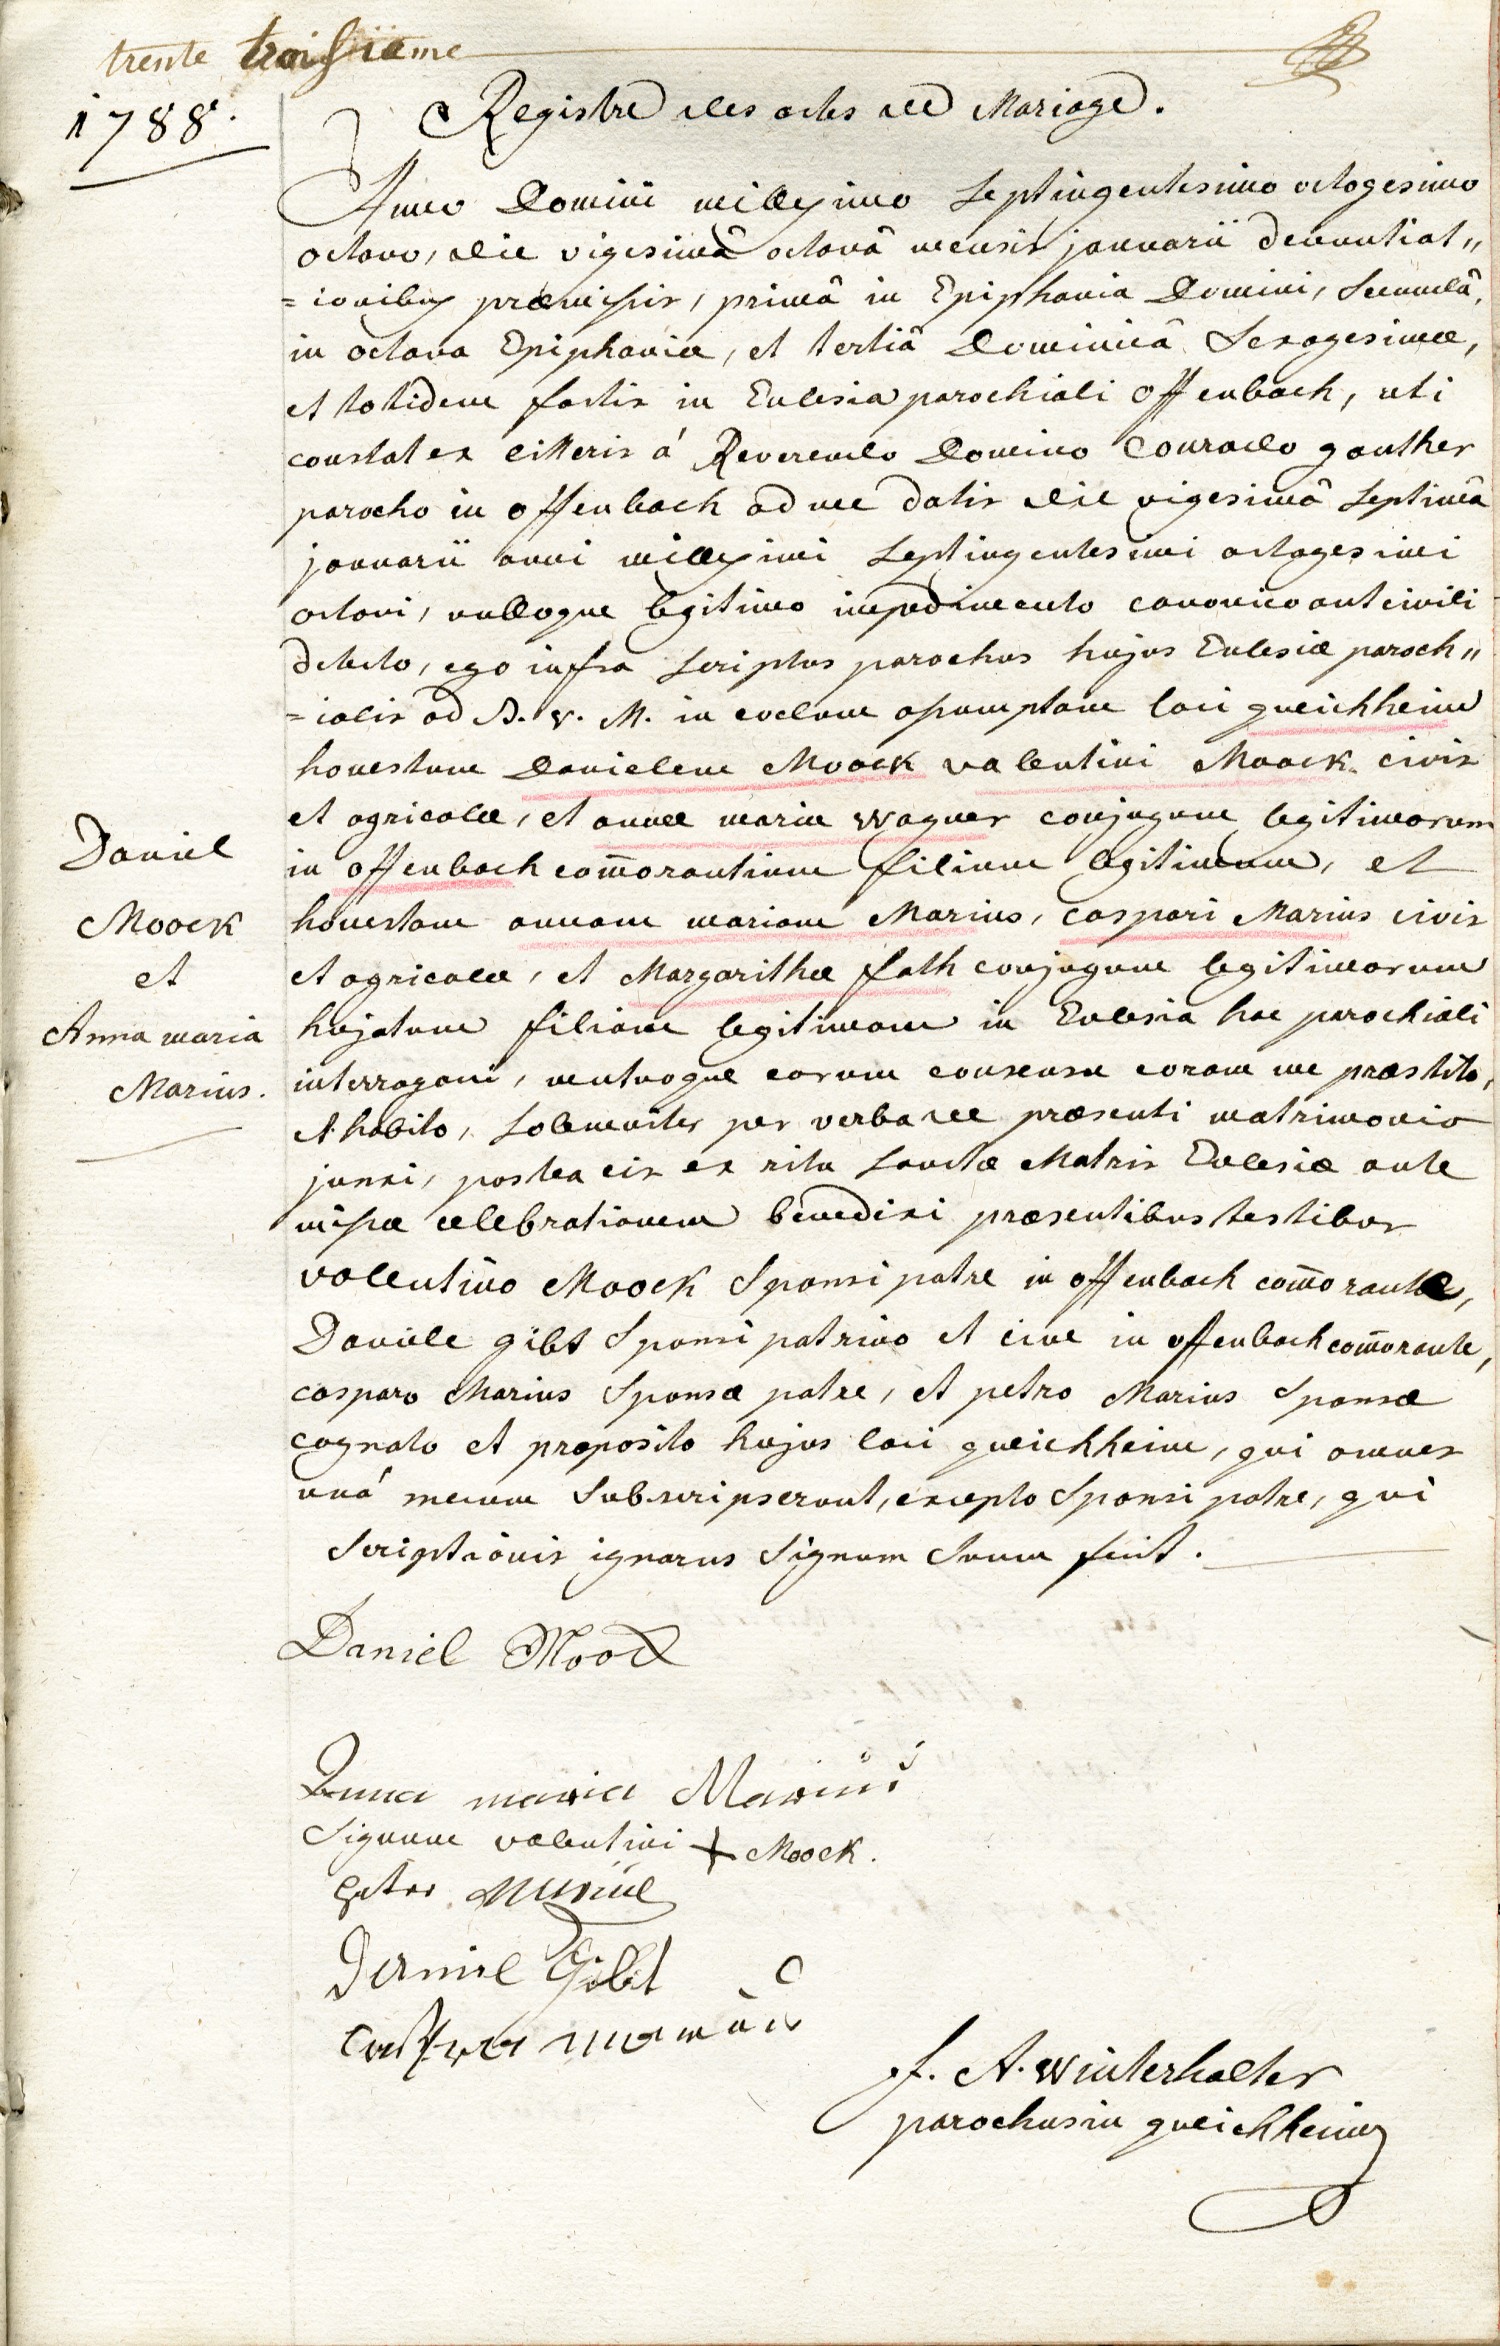 trente troisiieme
1788.
Registre des actes de Mariage.
Anno Domini millesimo Septingentesimo octogesimo
octavo, die vigesimâ octavâ mensis januarii denuntiat„
=ionibus præmissis, primâ in Epiphania Domini, Secundâ,
in octava Epiphaniæ, et tertiâ Dominicâ Sexagesimæ,
et totidem factis in Eclesia parochiali offenbach, uti
constat ex litteris á Reverendo Domino Conrado gauther
parocho in offenbach ad me datis die vigesimâ Septimâ
januarii anni millesimi Septingentesimi octogesimi
octavi, nulloque legitimo impedimento canonico aut civili
detecto, ego infra Scriptus parochus hujus Eclesiæ paroch„
=ialis ad B. V. M. in coelum assumptam loci queichheim
honestum Danielem Moock valentini Moock civis
et agricolæ, et annæ mariæ Wagner conjugum legitimorum
in offenbach com̄orantium filium legitimum, et
honestam annam mariam Marius, caspari Marius civis
et agricolæ, et Margarithæ fath conjugum legitimorum
hujatum filiam legitimam in Eclesia hac parochiali
interrogavi, mutuoque eorum consensu coram me præstito,
et habito, Solemniter per verba de præsenti matrimonio
junxi, postea eis ex ritu Sanctæ Matris Eclesiæ ante
missæ celebrationem benedixi præsentibus testibus
valentino Moock Sponsi patre in offenbach com̄orante,
Daniele gibt Sponsi patrino et cive in offenbach com̄orante,
casparo Marius Sponsæ patre, et petro Marius Sponsæ
cognato et præposito hujus loci queichheim, qui omnes
unà mecum Subscripserunt, excepto Sponsi patre, qui
Scriptionis ignarus Signum Suum fecit.
Daniel
Moock
et
Anna maria
Marius.
Daniel Moock
Anna maria Mariüs
Signum valentini + Moock.
peter
Daniel Gibt
f. A. Winterhalter
parochus in queichheim